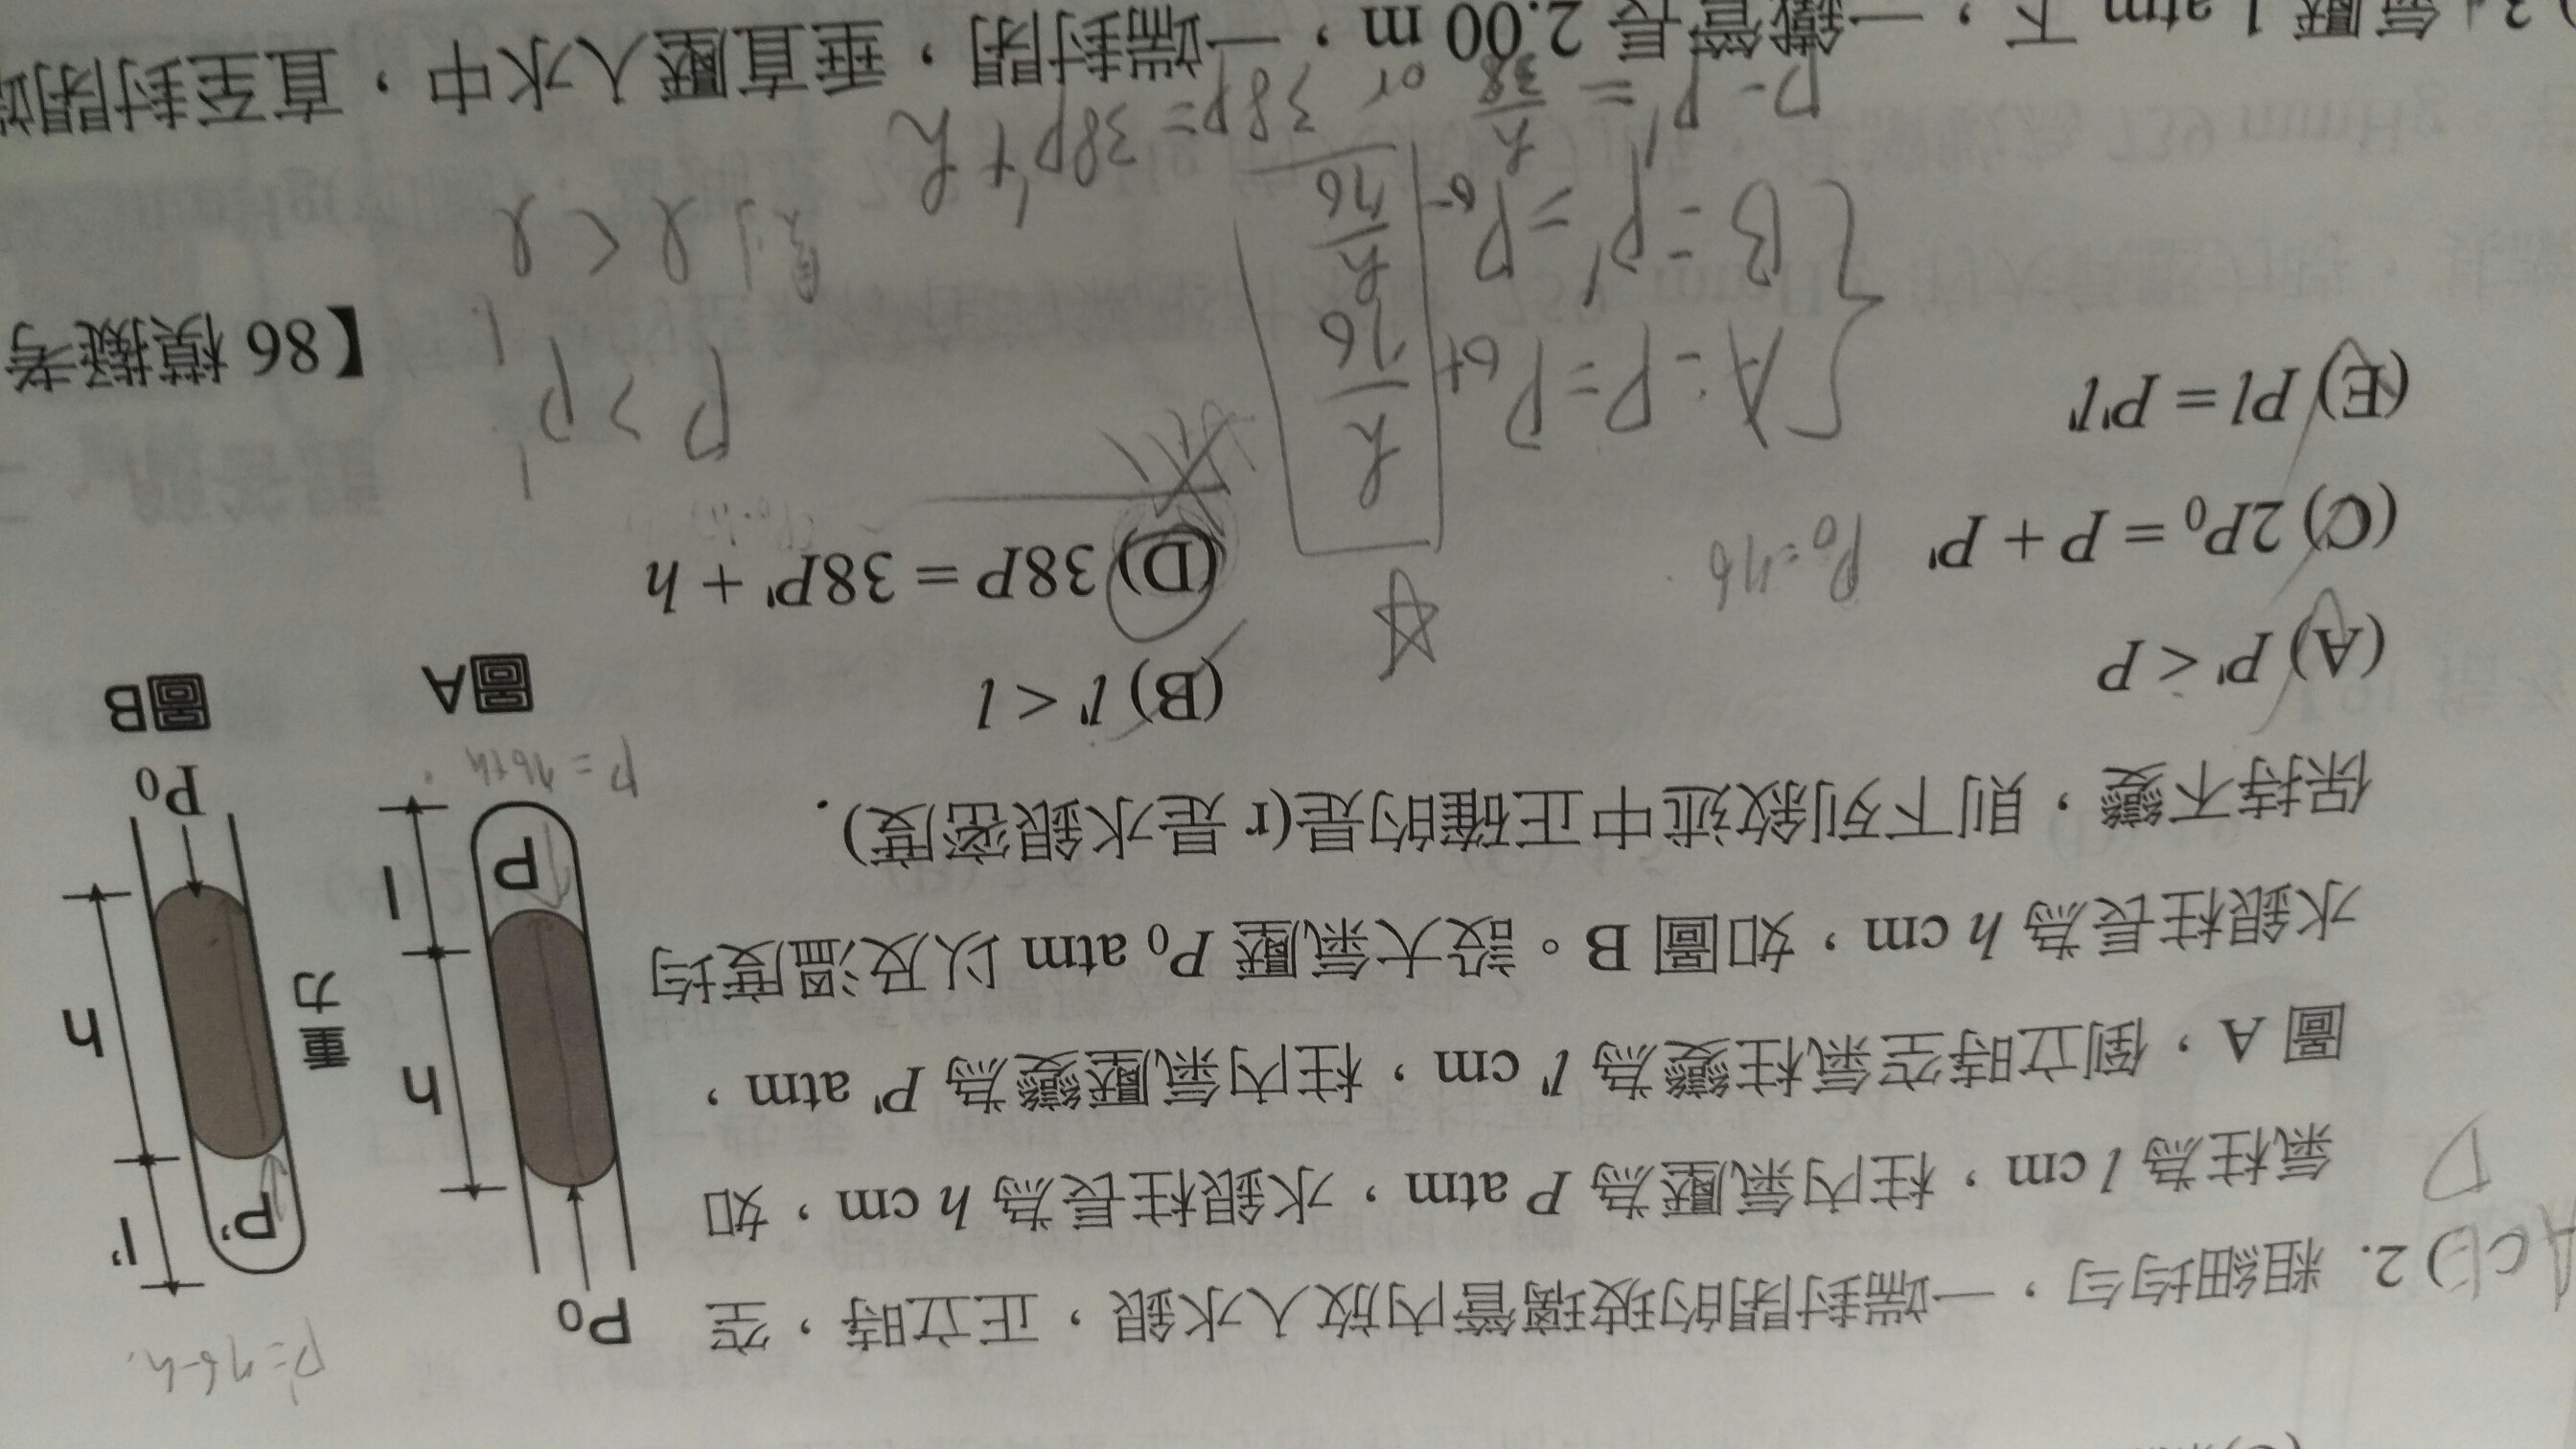 ACE) 2. 粗細均勻，一端封閉的玻璃管內放入水銀，正立時，空
D
氣柱為 l cm，柱內氣壓為 P atm，水銀柱長為 h cm，如
圖 A，倒立時空氣柱變為 l' cm，柱內氣壓變為 P' atm，
水銀柱長為 h cm，如圖 B。設大氣壓 P₀ atm 以及溫度均
保持不變，則下列敘述中正確的是(r 是水銀密度).
(A) P' < P
(B) l' < l
(C) 2P₀ = P + P'
P₀=76
(D) 38P = 38P' + h
(E) Pl = P'l'
【86 模擬考
P'=76-h
P₀
h
P
l
P=76+h
圖A
重力
l'
P'
h
P₀
圖B
A: P = P₀ + h/76
B = P' = P₀ - h/76
P - P' = h/38 or 38P = 38P' + h
P > P'
則 l < l'
3. 氣壓 1 atm 下，一鐵管長 2.00 m，一端封閉，垂直壓入水中，直至封閉端